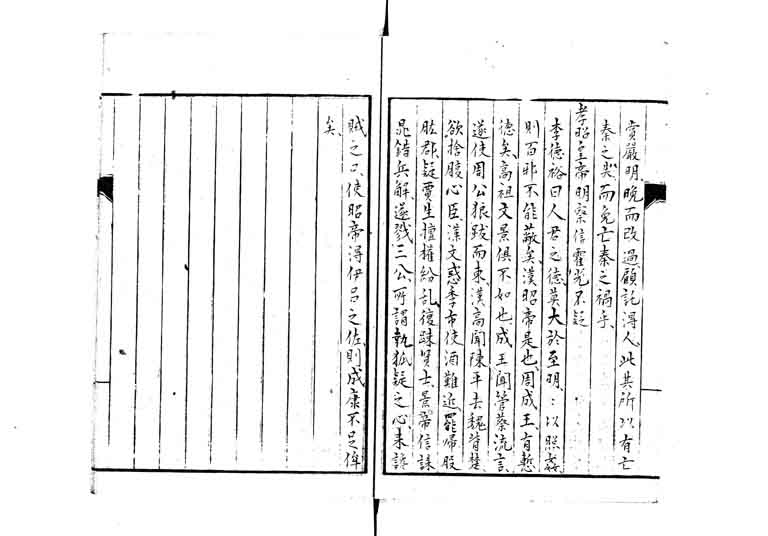 賞嚴明晚而改過顧託得人此其所以有亡
秦之失而免亡秦之禍乎
孝昭皇帝明察信霍光不疑
李德裕曰人君之德莫大於至明：以照姦
則百邪不能蔽矣漢昭帝是也周成王有慙
德矣高祖文景俱不如也成王聞管蔡流言
遂使周公狼跋而東漢高聞陳平去魏背楚
欲捨腹心臣漢文惑季布使酒難近罷歸股
肱郡疑賈生擅權紛乱復踈賢士景帝信誅
晁錯兵解遂戮三公所謂執狐疑之心来讒
賊之口使昭帝得伊呂之佐則成康不足侔
矣